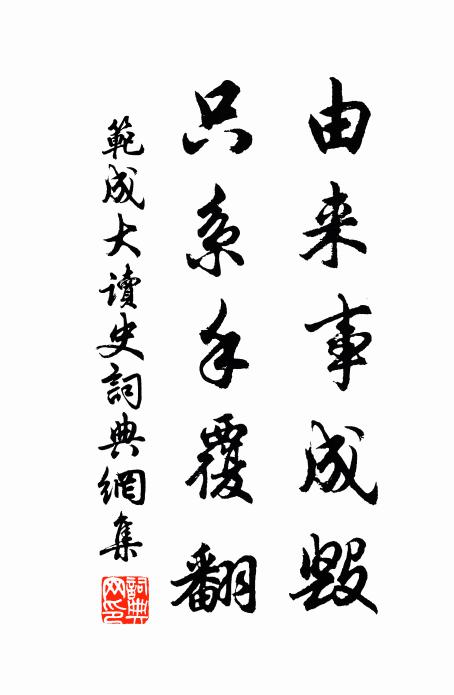 由来事成毀
只系手覆翻
範成大讀史詞典網集
詞典网印